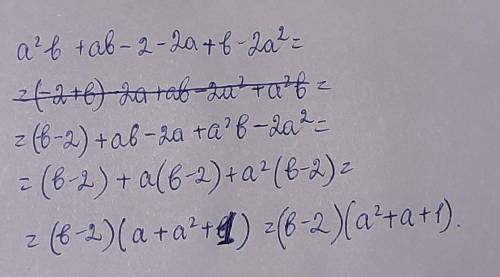 a²b + ab - 2 - 2a + b - 2a² =
= (-2+b) - 2a + ab - 2a² + a²b =
= (b-2) + ab - 2a + a²b - 2a² =
= (b-2) + a(b-2) + a²(b-2) =
= (b-2)(a + a² + 1) = (b-2)(a² + a + 1).